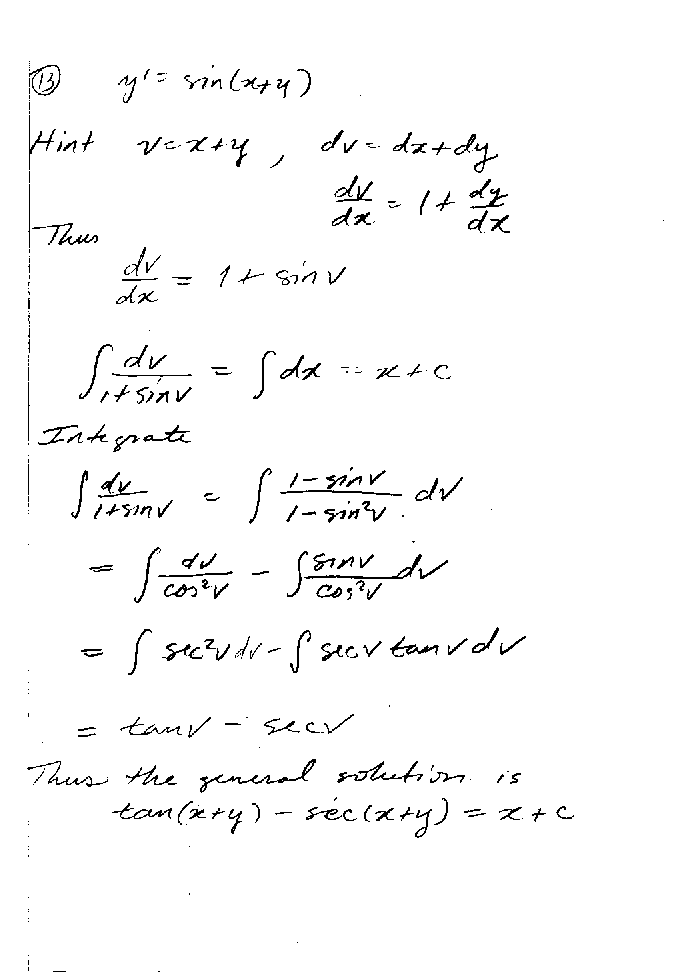 ⑬ y' = sin(x+y)
Hint v=x+y, dv = dx+dy
dv/dx = 1 + dy/dx
Thus
dv/dx = 1 + sin v
∫ dv/(1+sin v) = ∫ dx = x + c
Integrate
∫ dv/(1+sin v) = ∫ (1-sin v)/(1-sin²v) dv
= ∫ dv/cos²v - ∫ sin v/cos²v dv
= ∫ sec²v dv - ∫ sec v tan v dv
= tan v - sec v
Thus the general solution is
tan(x+y) - sec(x+y) = x + c